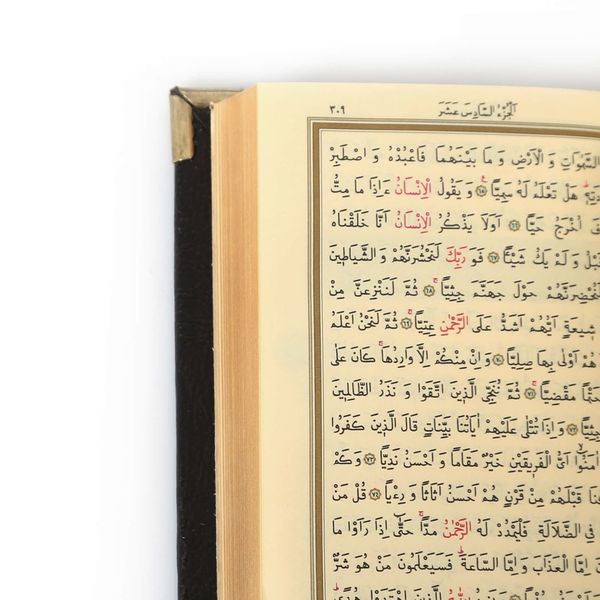 ٣٠٩ اَلْجُزْءُ السَّادِسَ عَشَرَ
السَّمٰوَاتِ وَ الْاَرْضِ وَ مَا بَيْنَهُمَا فَاعْبُدْهُ وَ اصْطَبِرْ
هَلْ تَعْلَمُ لَهُ سَمِيًّا ﴿٦٥﴾ وَ يَقُولُ الْاِنْسَانُ ءَاِذَا مَا مِتُّ
اُخْرَجُ حَيًّا ﴿٦٦﴾ اَوَلَا يَذْكُرُ الْاِنْسَانُ اَنَّا خَلَقْنَاهُ
وَ لَمْ يَكُ شَيْئًا ﴿٦٧﴾ فَوَ رَبِّكَ لَنَحْشُرَنَّهُمْ وَ الشَّيَاطٖينَ
لَنُحْضِرَنَّهُمْ حَوْلَ جَهَنَّمَ جِثِيًّا ﴿٦٨﴾ ثُمَّ لَنَنْزِعَنَّ مِنْ
شٖيعَةٍ اَيُّهُمْ اَشَدُّ عَلَى الرَّحْمٰنِ عِتِيًّا ﴿٦٩﴾ ثُمَّ لَنَحْنُ اَعْلَمُ
هُمْ اَوْلٰى بِهَا صِلِيًّا ﴿٧٠﴾ وَ اِنْ مِنْكُمْ اِلَّا وَارِدُهَا كَانَ عَلٰى
حَتْمًا مَقْضِيًّا ﴿٧١﴾ ثُمَّ نُنَجِّى الَّذٖينَ اتَّقَوْا وَ نَذَرُ الظَّالِمٖينَ
جِثِيًّا ﴿٧٢﴾ وَ اِذَا تُتْلٰى عَلَيْهِمْ اٰيَاتُنَا بَيِّنَاتٍ قَالَ الَّذٖينَ كَفَرُوا
اٰمَنُوا اَىُّ الْفَرٖيقَيْنِ خَيْرٌ مَقَامًا وَ اَحْسَنُ نَدِيًّا ﴿٧٣﴾ وَ كَمْ
قَبْلَهُمْ مِنْ قَرْنٍ هُمْ اَحْسَنُ اَثَاثًا وَ رِءْيًا ﴿٧٤﴾ قُلْ مَنْ
فِى الضَّلَالَةِ فَلْيَمْدُدْ لَهُ الرَّحْمٰنُ مَدًّا حَتّٰٓى اِذَا رَاَوْا مَا
اِمَّا الْعَذَابَ وَ اِمَّا السَّاعَةَ فَسَيَعْلَمُونَ مَنْ هُوَ شَرٌّ